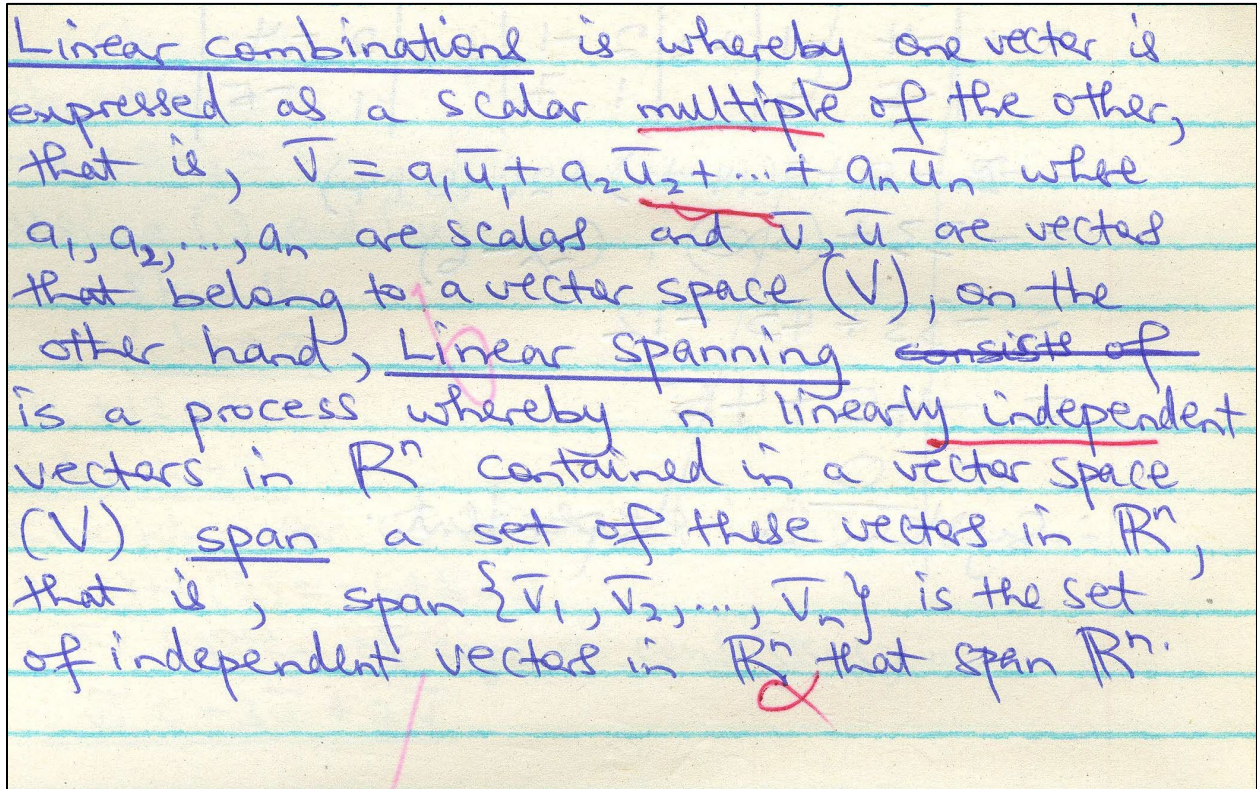 Linear combinations is whereby one vector is
expressed as a scalar multiple of the other,
that is, v̅ = a₁u̅₁ + a₂u̅₂ + ... + aₙu̅ₙ whee
a₁, a₂, ..., aₙ are scalars and v̅, u̅ are vectors
that belong to a vector space (V), on the
other hand, Linear spanning consists of
is a process whereby n linearly independent
vectors in ℝⁿ contained in a vector space
(V) span a set of these vectors in ℝⁿ,
that is, span {v̅₁, v̅₂, ..., v̅ₙ} is the set
of independent vectors in ℝⁿ that span ℝⁿ.